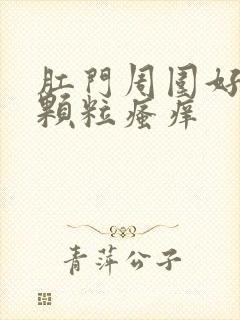 肛門周圍好
顆粒瘙痒
青萍公子